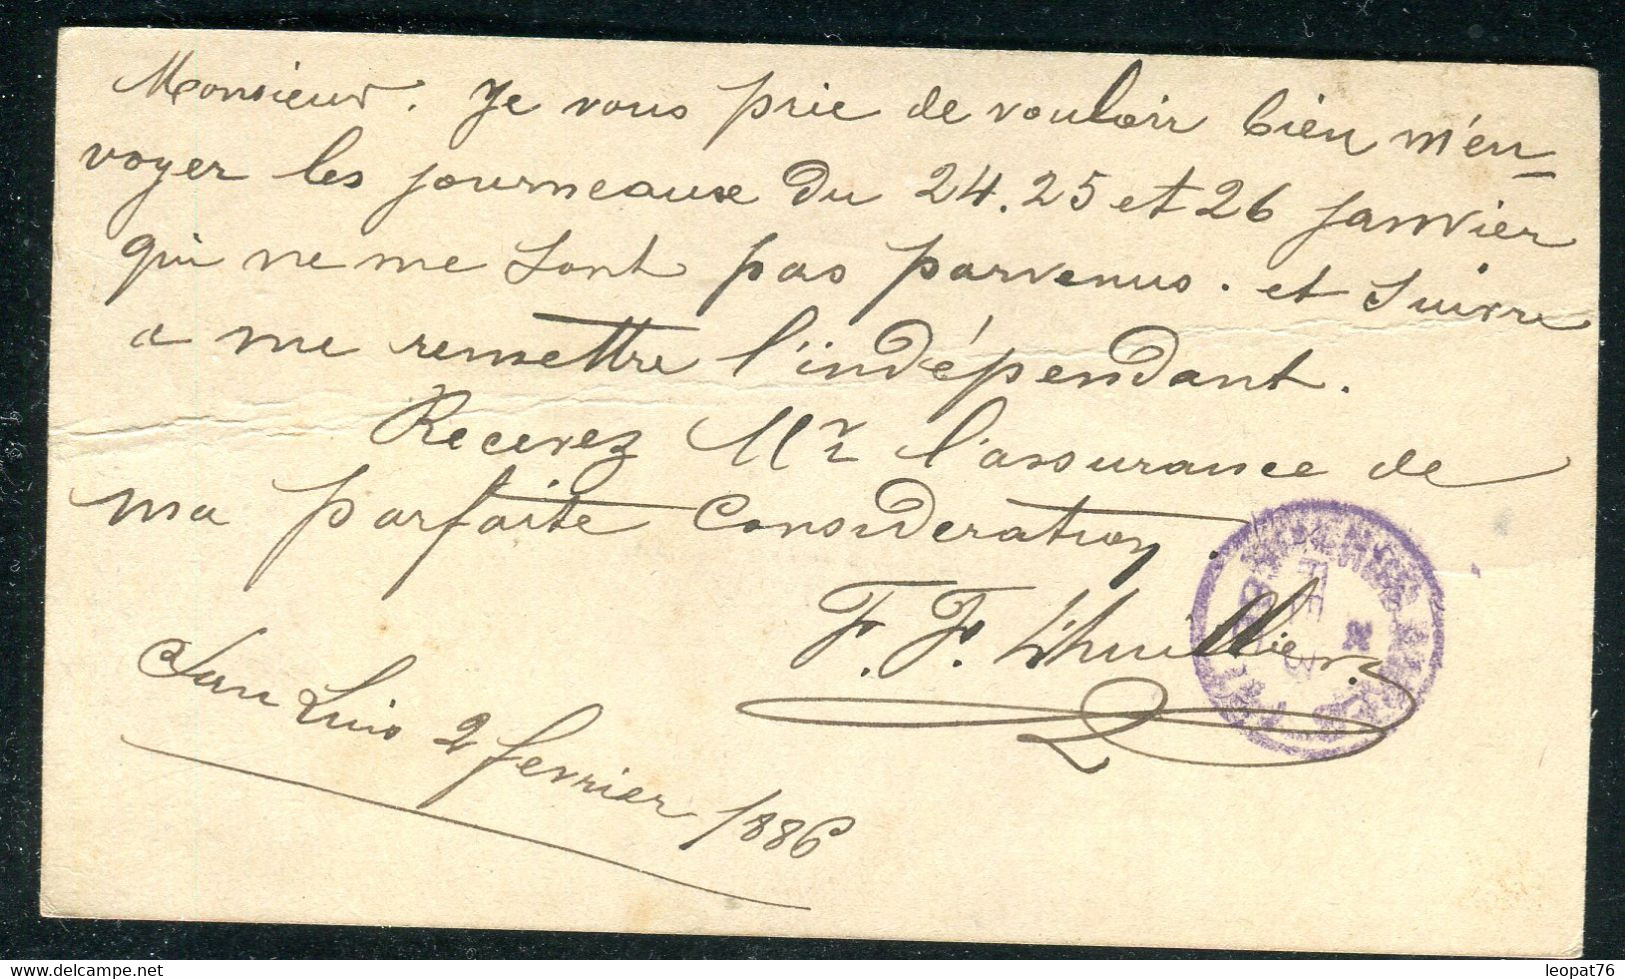 Monsieur. Je vous prie de vouloir bien m'en
voyer les journeaux du 24.25 et 26 janvier
qui ne me sont pas parvenus. et suivre
a me remettre l'indépendant.
Recevez Mr l'assurance de
ma parfaite Consideration.
F. F. Lhuillier.
San Luis 2 fevrier 1886
leopat76